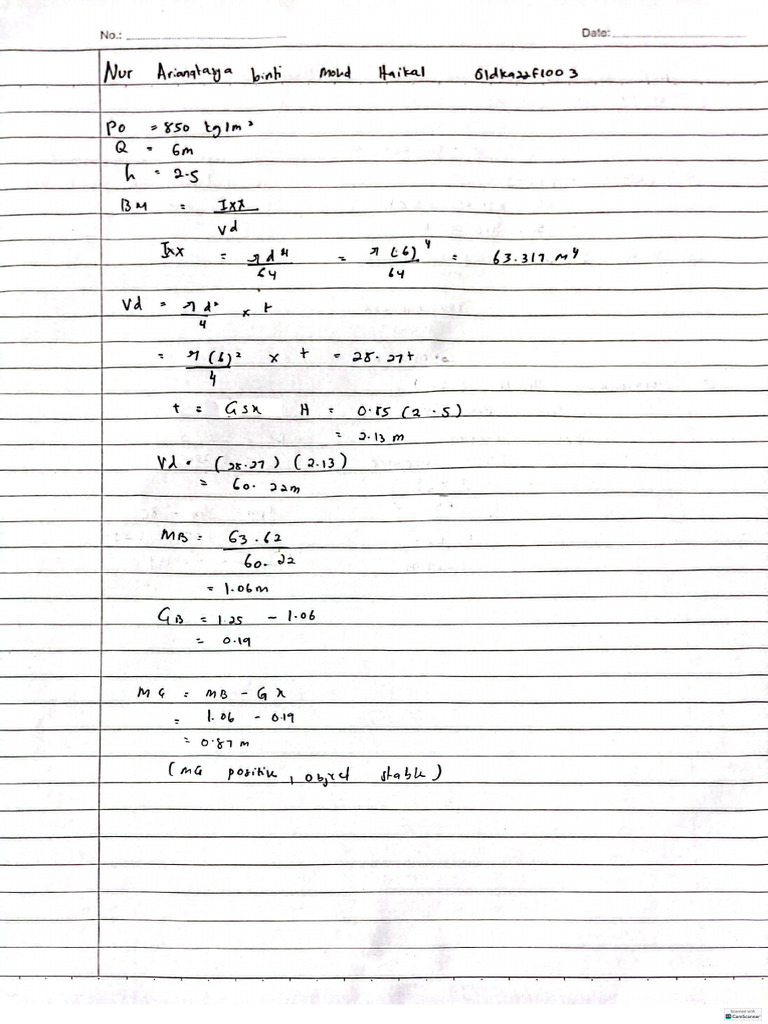 No.: Date:
Nur Ariangtasya binti Mohd Haikal 01dka22f1003
Po = 850 kg/m³
Q = 6m
h = 2.5
BM = Ixx / Vd
Ixx = πd⁴ / 64 = π(6)⁴ / 64 = 63.317 m⁴
Vd = πd² / 4 × t
= π(6)² / 4 × t = 28.27t
t = Gsx H = 0.85 (2.5)
= 2.13 m
Vd = (28.27) (2.13)
= 60.22m
MB = 63.62 / 60.22
= 1.06m
GB = 1.25 - 1.06
= 0.19
MG = MB - Gx
= 1.06 - 0.19
= 0.87 m
(MG positive, object stable)
Scanned with
CamScanner